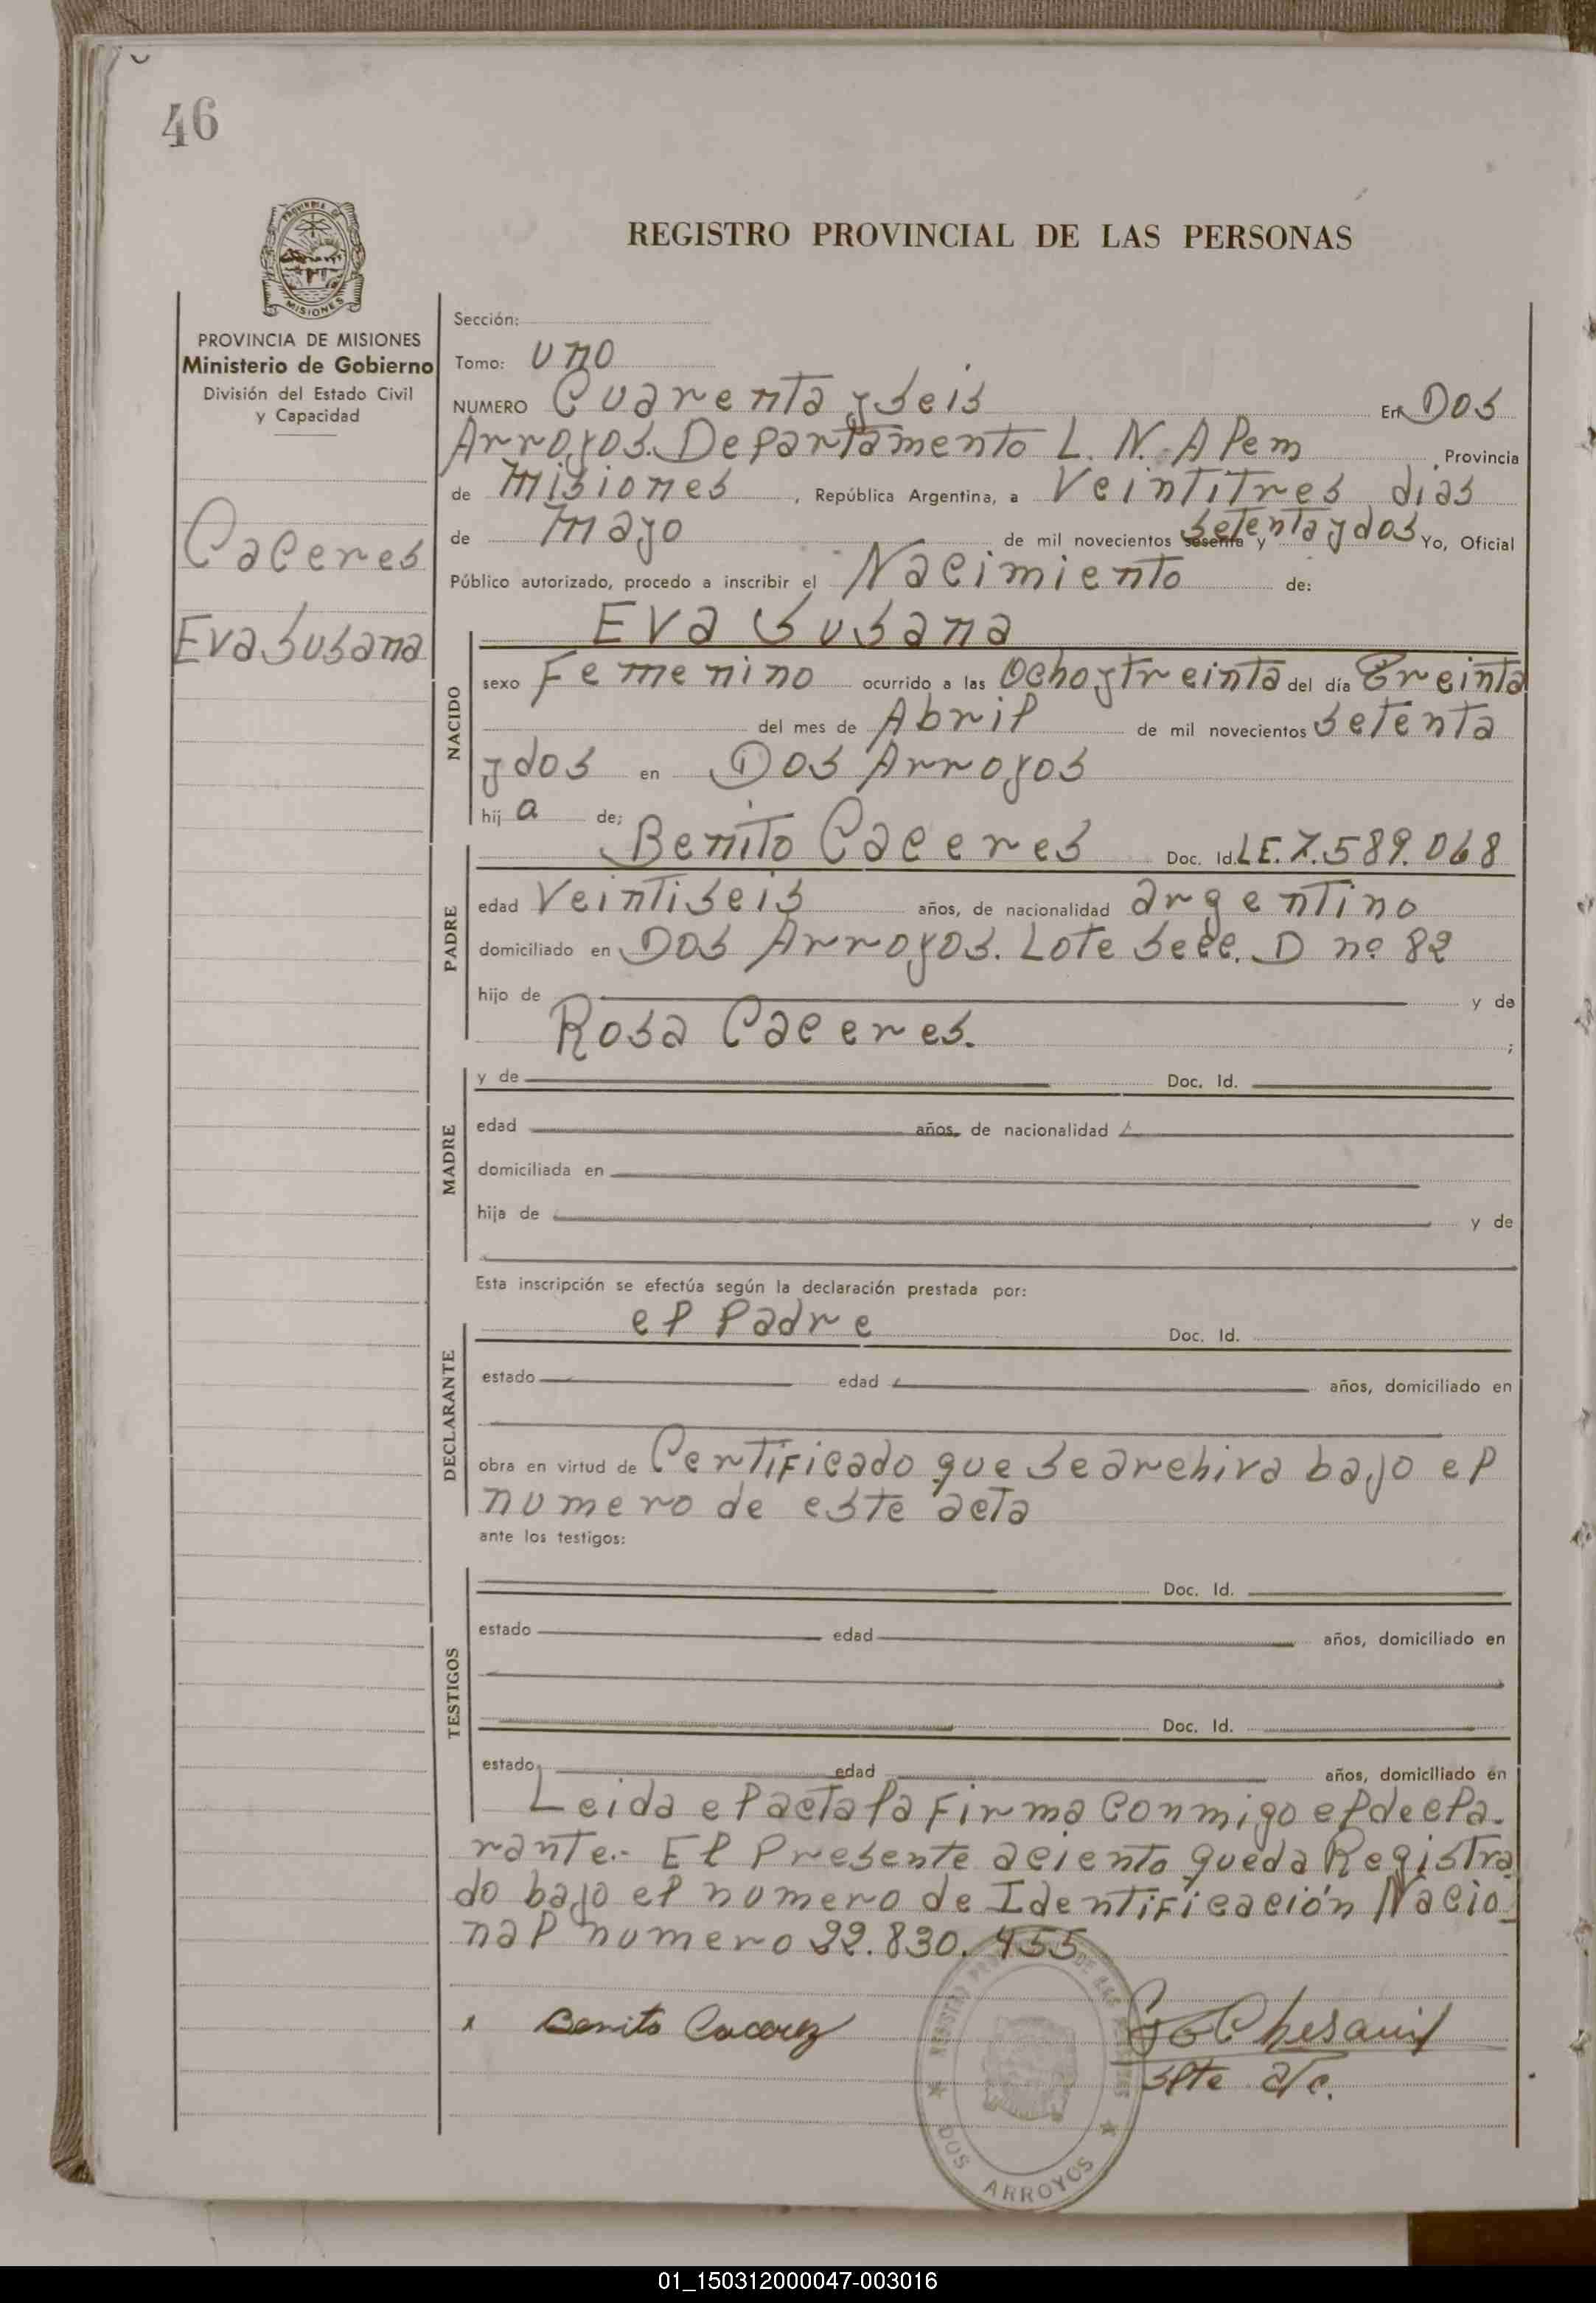 46
PROVINCIA DE
MISIONES
REGISTRO PROVINCIAL DE LAS PERSONAS
PROVINCIA DE MISIONES
Ministerio de Gobierno
División del Estado Civil
y Capacidad
Caceres
Eva Susana
Sección:
Tomo: uno
NUMERO Cuarenta y seis En Dos
Arroyos. Departamento L. N. Alem , Provincia
de Misiones , República Argentina, a Veintitres dias
de mayo de mil novecientos sesenta y setenta y dos Yo, Oficial
Público autorizado, procedo a inscribir el Nacimiento de:
NACIDO
Eva Susana
sexo Femenino ocurrido a las Ocho y treinta del día Treinta
del mes de Abril de mil novecientos setenta
y dos en Dos Arroyos
hij a de;
PADRE
Benito Caceres Doc. Id. LE. 7.589.068
edad Veintiseis años, de nacionalidad argentino
domiciliado en Dos Arroyos. Lote Secc. D nº 82
hijo de y de
Rosa Caceres. ;
MADRE
y de Doc. Id.
edad años, de nacionalidad
domiciliada en
hija de y de
Esta inscripción se efectúa según la declaración prestada por:
DECLARANTE
el Padre Doc. Id.
estado edad años, domiciliado en
obra en virtud de Certificado que se archiva bajo el
numero de este acta
ante los testigos:
TESTIGOS
Doc. Id.
estado edad años, domiciliado en
Doc. Id.
estado edad años, domiciliado en
Leida el acta la firma conmigo el decla-
rante.- El Presente aciento queda Registra
do bajo el numero de Identificación Nacio
nal numero 22.830.455
Benito Cacerez
Slte a/c.
DOS ARROYOS
01_150312000047-003016